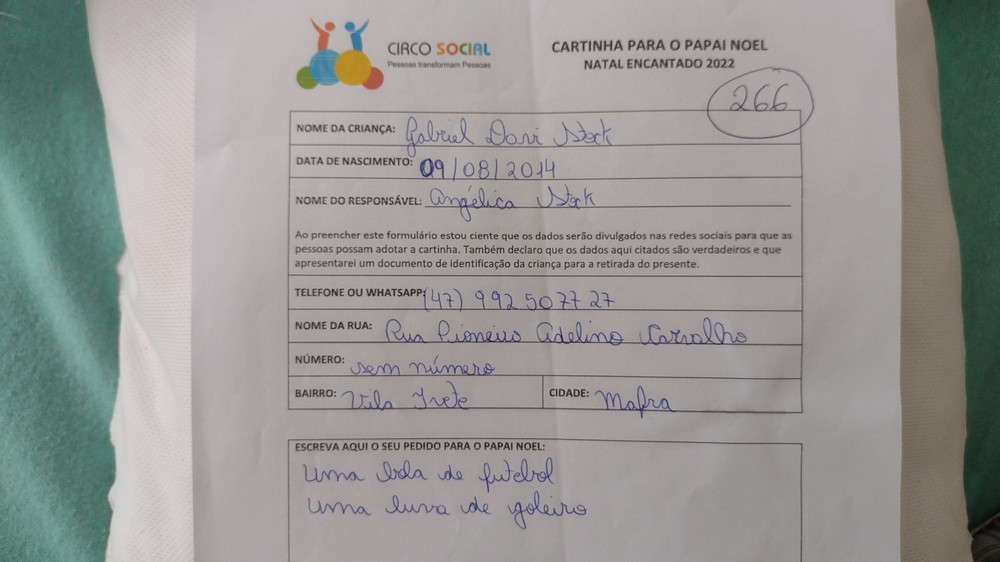 CIRCO SOCIAL
Pessoas transformam Pessoas
CARTINHA PARA O PAPAI NOEL
NATAL ENCANTADO 2022
266
NOME DA CRIANÇA: Gabriel Davi Stock
DATA DE NASCIMENTO: 09/08/2014
NOME DO RESPONSÁVEL: Angélica Stock
Ao preencher este formulário estou ciente que os dados serão divulgados nas redes sociais para que as
pessoas possam adotar a cartinha. Também declaro que os dados aqui citados são verdadeiros e que
apresentarei um documento de identificação da criança para a retirada do presente.
TELEFONE OU WHATSAPP: (47) 992 50 77 27
NOME DA RUA: Rua Pioneiro Adelino Carvalho
NÚMERO: sem número
BAIRRO: Vila Ivete CIDADE: Mafra
ESCREVA AQUI O SEU PEDIDO PARA O PAPAI NOEL:
uma bola de futebol
uma luva de goleiro